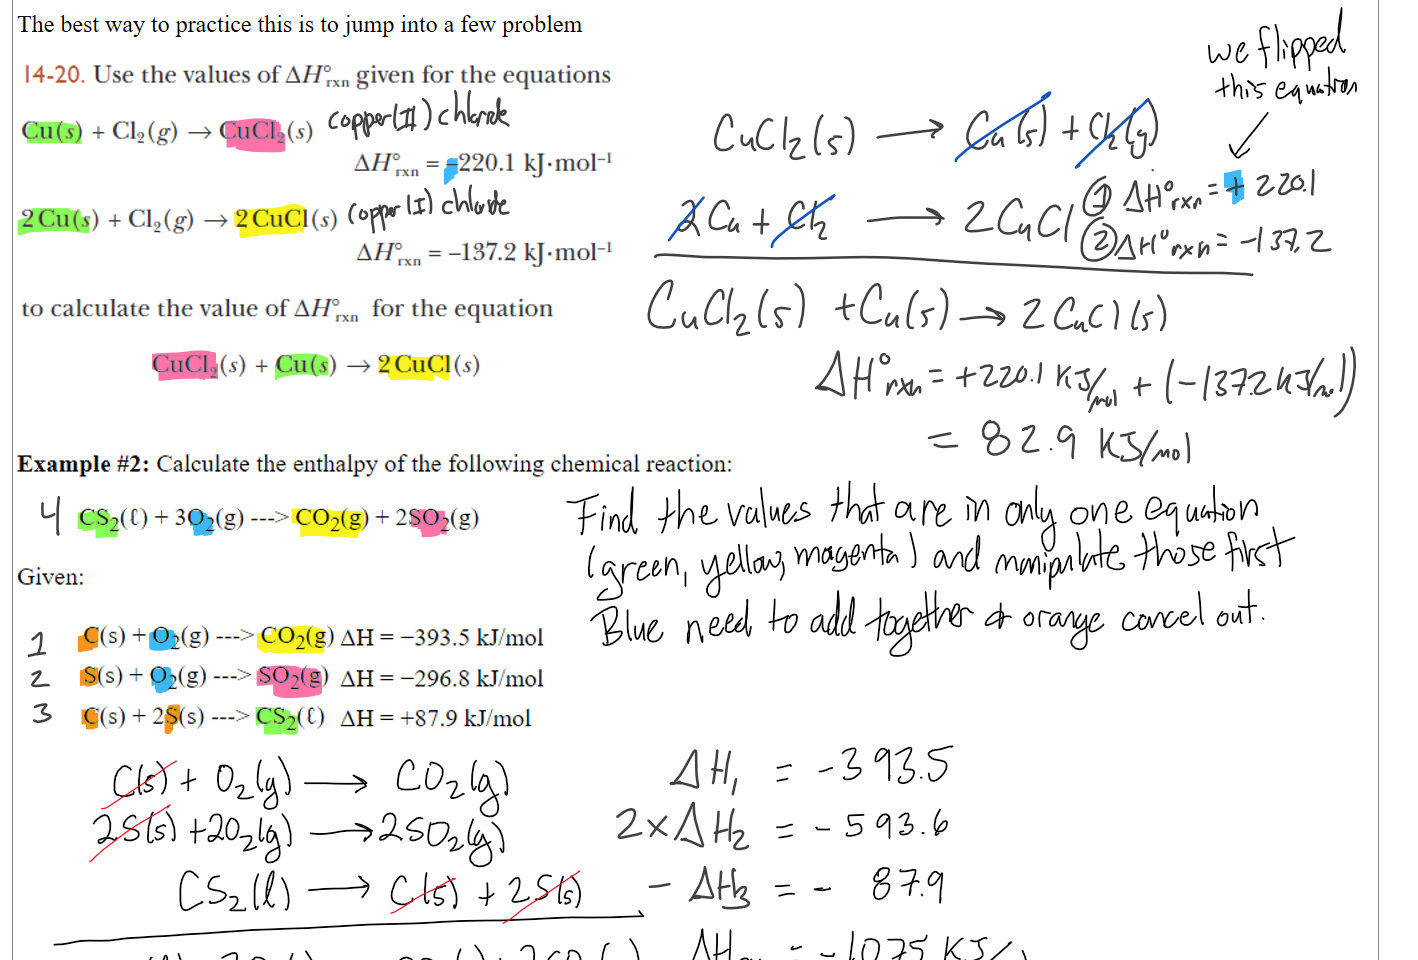 The best way to practice this is to jump into a few problem
we flipped
this equation
14-20. Use the values of ΔH°rxn given for the equations
Cu(s) + Cl₂(g) → CuCl₂(s) copper(II) chloride
ΔH°rxn = –220.1 kJ·mol⁻¹
2 Cu(s) + Cl₂(g) → 2 CuCl(s) copper(I) chloride
ΔH°rxn = –137.2 kJ·mol⁻¹
to calculate the value of ΔH°rxn for the equation
CuCl₂(s) + Cu(s) → 2 CuCl(s)
CuCl₂(s) → Cu(s) + Cl₂(g)
① ΔH°rxn = + 220.1
2Cu + Cl₂ → 2CuCl
② ΔH°rxn = -137.2
CuCl₂(s) + Cu(s) → 2CuCl(s)
ΔH°rxn = +220.1 KJ/mol + (-137.2 KJ/mol)
= 82.9 KJ/mol
Example #2: Calculate the enthalpy of the following chemical reaction:
4 CS₂(ℓ) + 3O₂(g) ---> CO₂(g) + 2SO₂(g)
Find the values that are in only one equation
(green, yellow, magenta) and manipulate those first
Blue need to add together & orange cancel out.
Given:
1 C(s) + O₂(g) ---> CO₂(g) ΔH = −393.5 kJ/mol
2 S(s) + O₂(g) ---> SO₂(g) ΔH = −296.8 kJ/mol
3 C(s) + 2S(s) ---> CS₂(ℓ) ΔH = +87.9 kJ/mol
C(s) + O₂(g) → CO₂(g) ΔH₁ = -393.5
2S(s) + 2O₂(g) → 2SO₂(g) 2xΔH₂ = -593.6
CS₂(l) → C(s) + 2S(s) - ΔH₃ = - 87.9
= -1075 KJ/